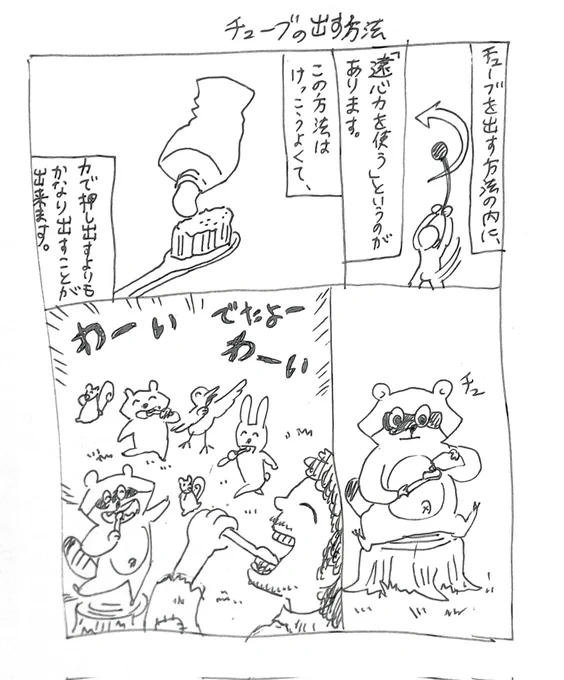 チューブの出す方法
チューブを出す方法の内に、
「遠心力を使う」というのが
あります。
この方法は
けっこうよくて、
力で押し出すよりも
かなり出すことが
出来ます。
チュ
でたよー
わーい
わーい